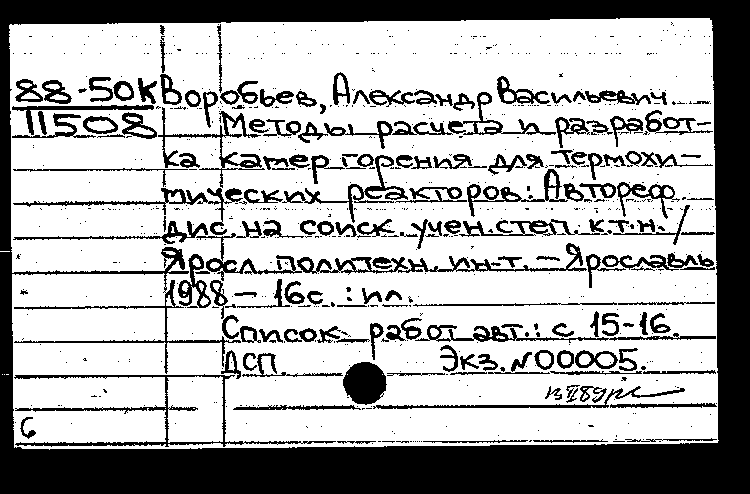 88-50К Воробьев, Александр Васильевич.
11508 Методы расчета и разработ-
ка камер горения для термохи-
мических реакторов: Автореф
дис. на соиск. учен. степ. к.т.н. /
Яросл. политехн. ин-т. – Ярославль
1988 – 16с. : ил.
Список работ авт.: с 15-16.
ДСП. Экз. N00005.
6